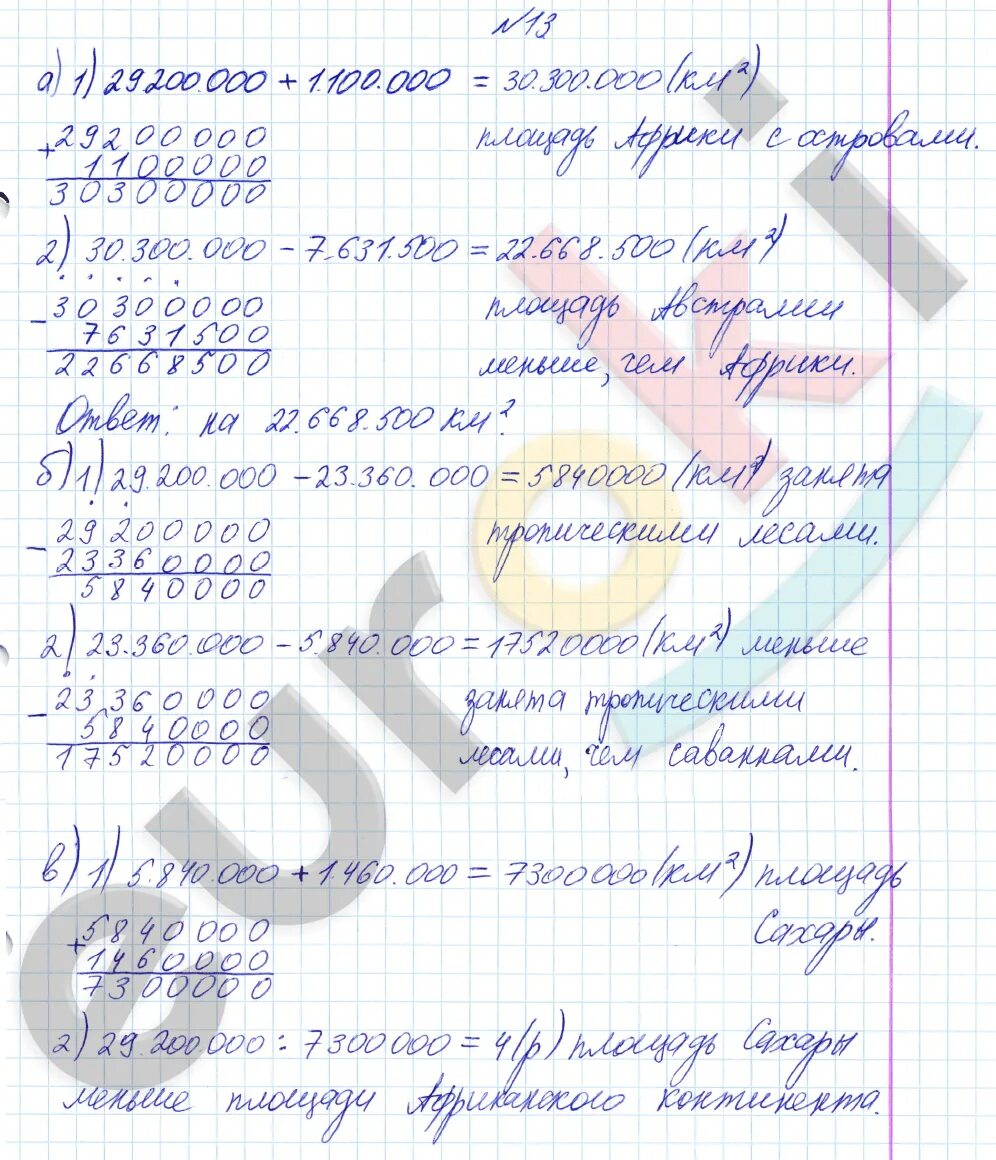 №13
а) 1) 29.200.000 + 1.100.000 = 30.300.000 (км²)
площадь Африки с островами.
+29200000
1100000
30300000
2) 30.300.000 - 7.631.500 = 22.668.500 (км²)
площадь Австралии
меньше, чем Африки.
-30300000
7631500
22668500
Ответ: на 22.668.500 км².
б) 1) 29.200.000 - 23.360.000 = 5840000 (км²) занята
тропическими лесами.
-29200000
23360000
5840000
2) 23.360.000 - 5.840.000 = 17520000 (км²) меньше
занята тропическими
лесами, чем саваннами.
-23360000
5840000
17520000
в) 1) 5.840.000 + 1.460.000 = 7300000 (км²) площадь
Сахары.
+5840000
1460000
7300000
2) 29.200000 : 7300000 = 4 (р) площадь Сахары
меньше площади Африканского континента.
euroki